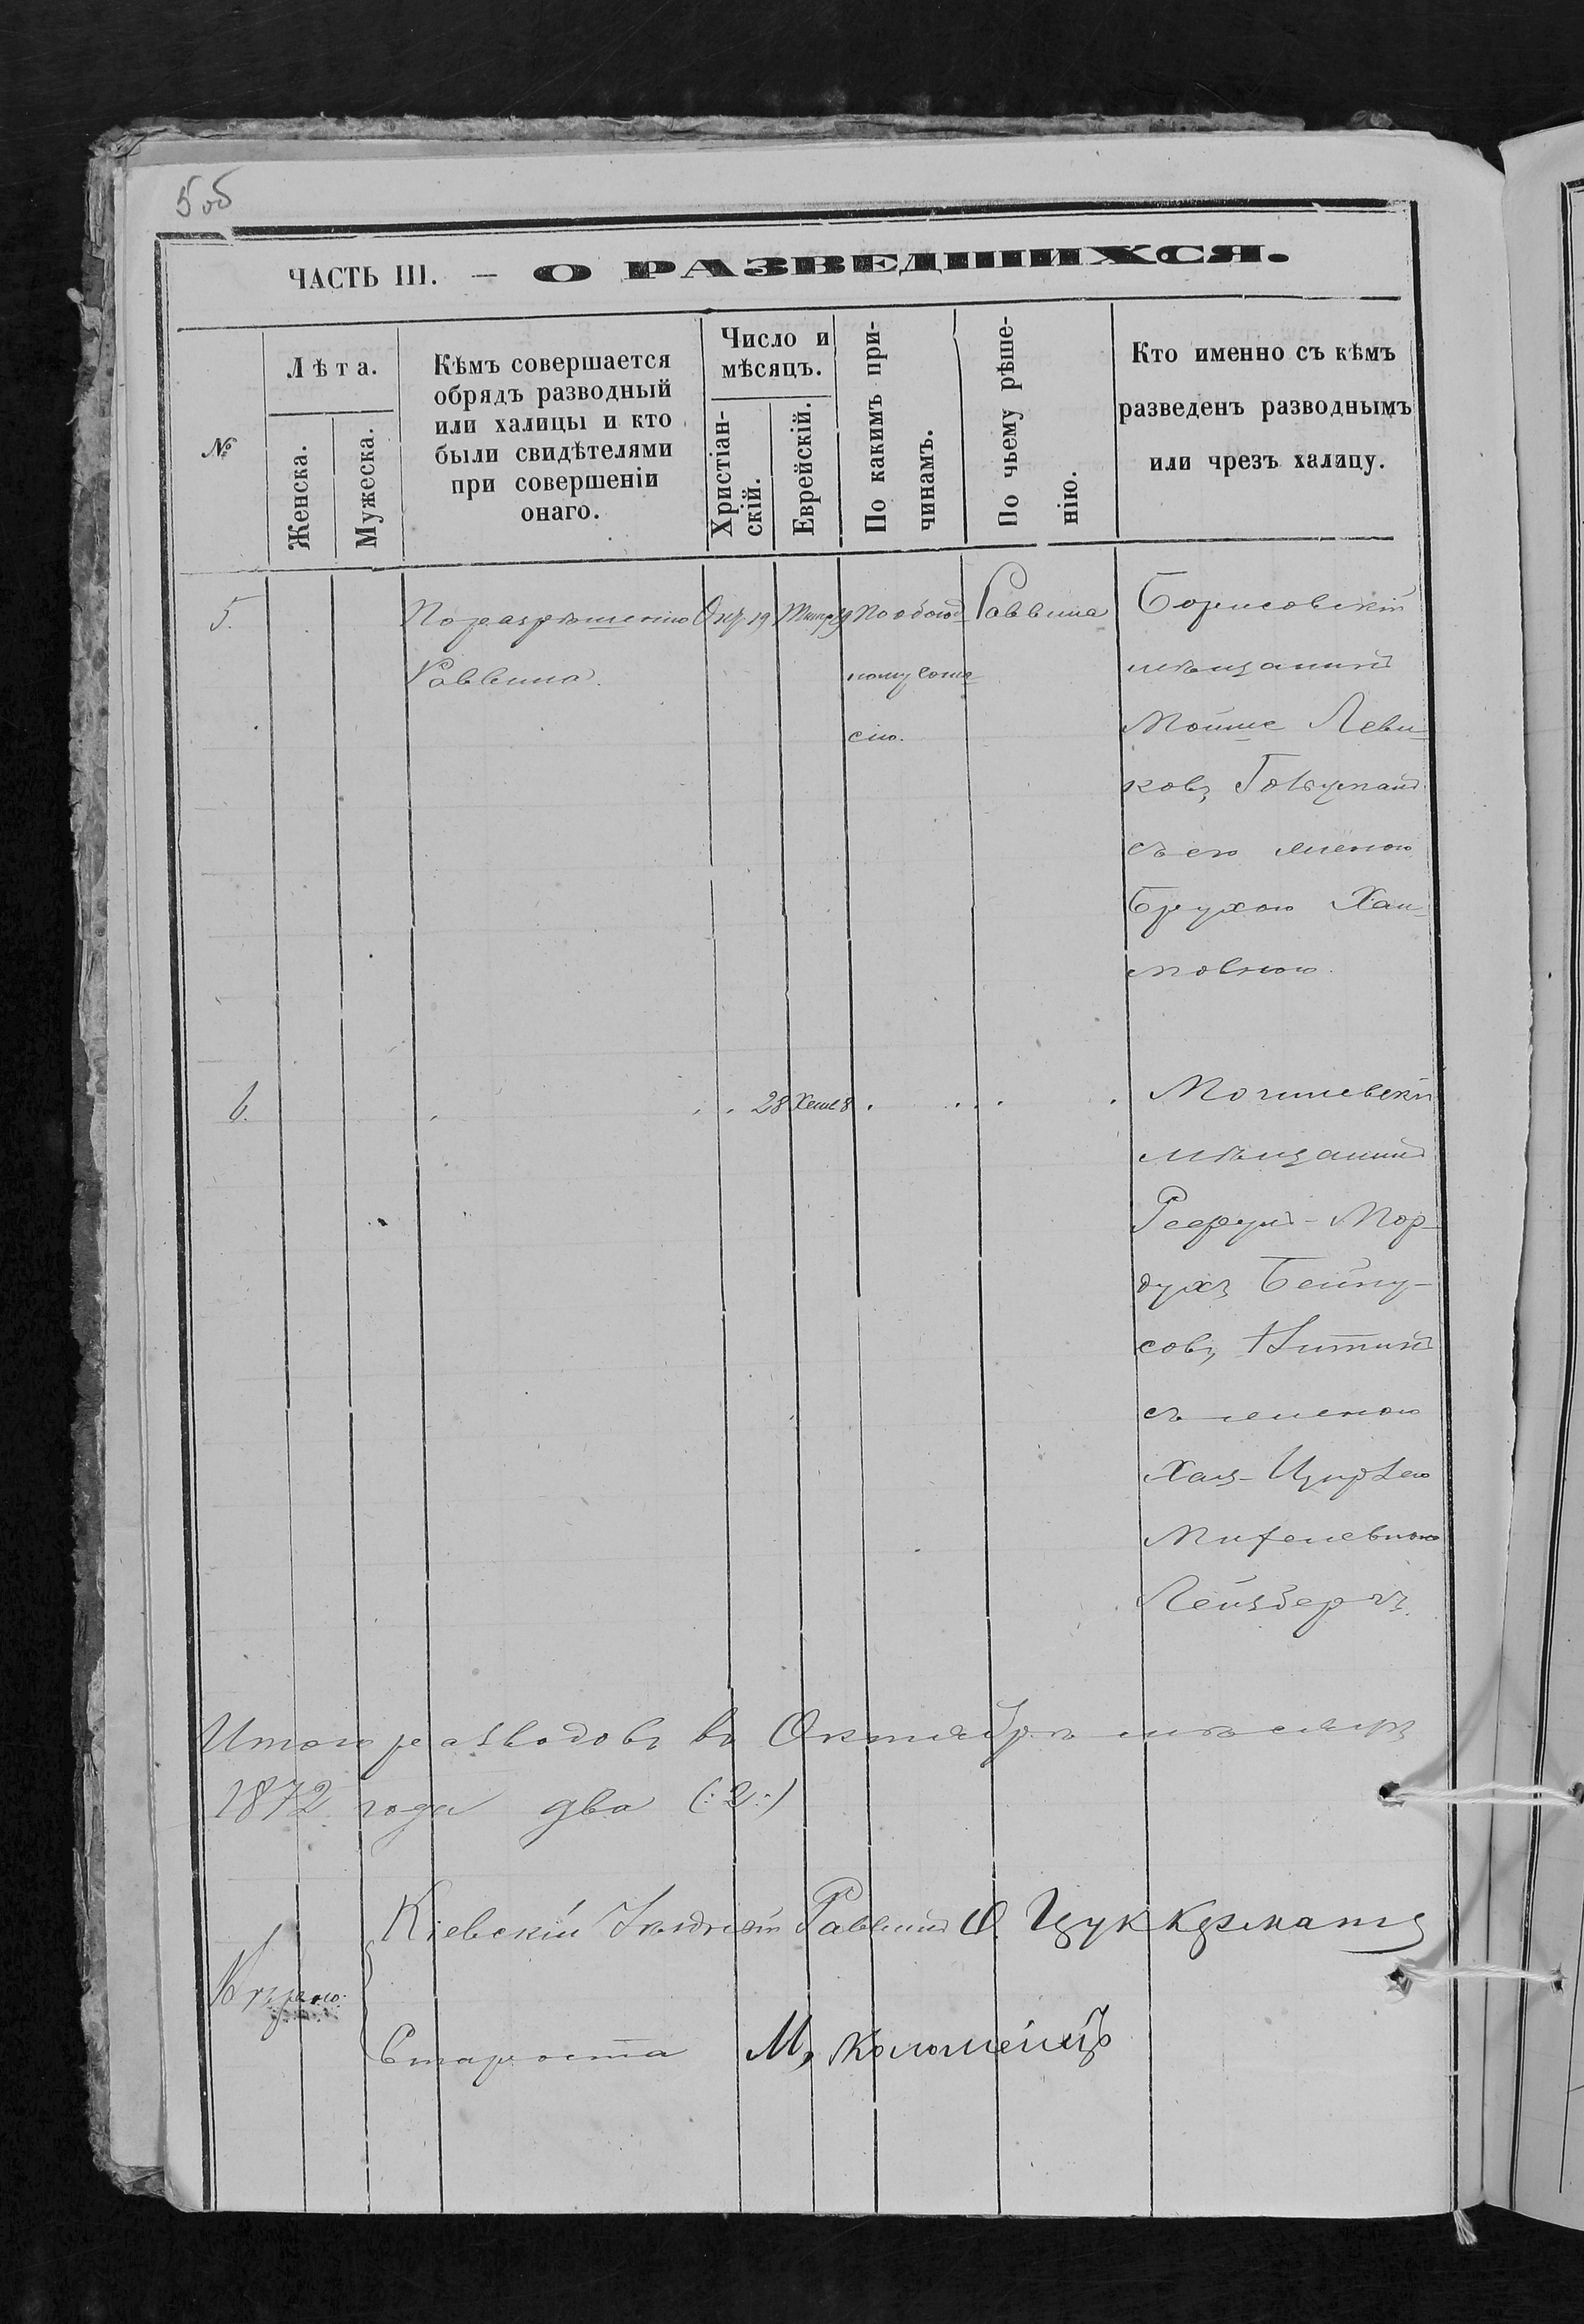 5 об
ЧАСТЬ III. — О РАЗВЕДШИХСЯ.
№
Лѣта.
Женска.
Мужеска.
Кѣмъ совершается
обрядъ разводный
или халицы и кто
были свидѣтелями
при совершеніи
онаго.
Число и
мѣсяцъ.
Христіан-
скій.
Еврейскій.
По какимъ при-
чинамъ.
По чьему рѣше-
нію.
Кто именно съ кѣмъ
разведенъ разводнымъ
или чрезъ халицу.
5.
По разрѣшенію
Раввина.
Окт. 19
19
По обоюд-
ному согла
сію.
Раввина
Борисовскій
мѣщанинъ
Мошше Леви-
ковъ
съ его женою
Брухою Хаи-
мовною.
6.
28 Хеше 8
Могилевскій
мѣщанинъ
Мор-
духъ Бейну-
совъ
съ женою
Хая-Цирлею
Лейзбергъ.
Итого разводовъ въ Октябрѣ мѣсяцѣ
1872 года два (:2:)
Кіевскій Уѣздный Раввинъ Цуккерманъ
Староста М. Коломеецъ